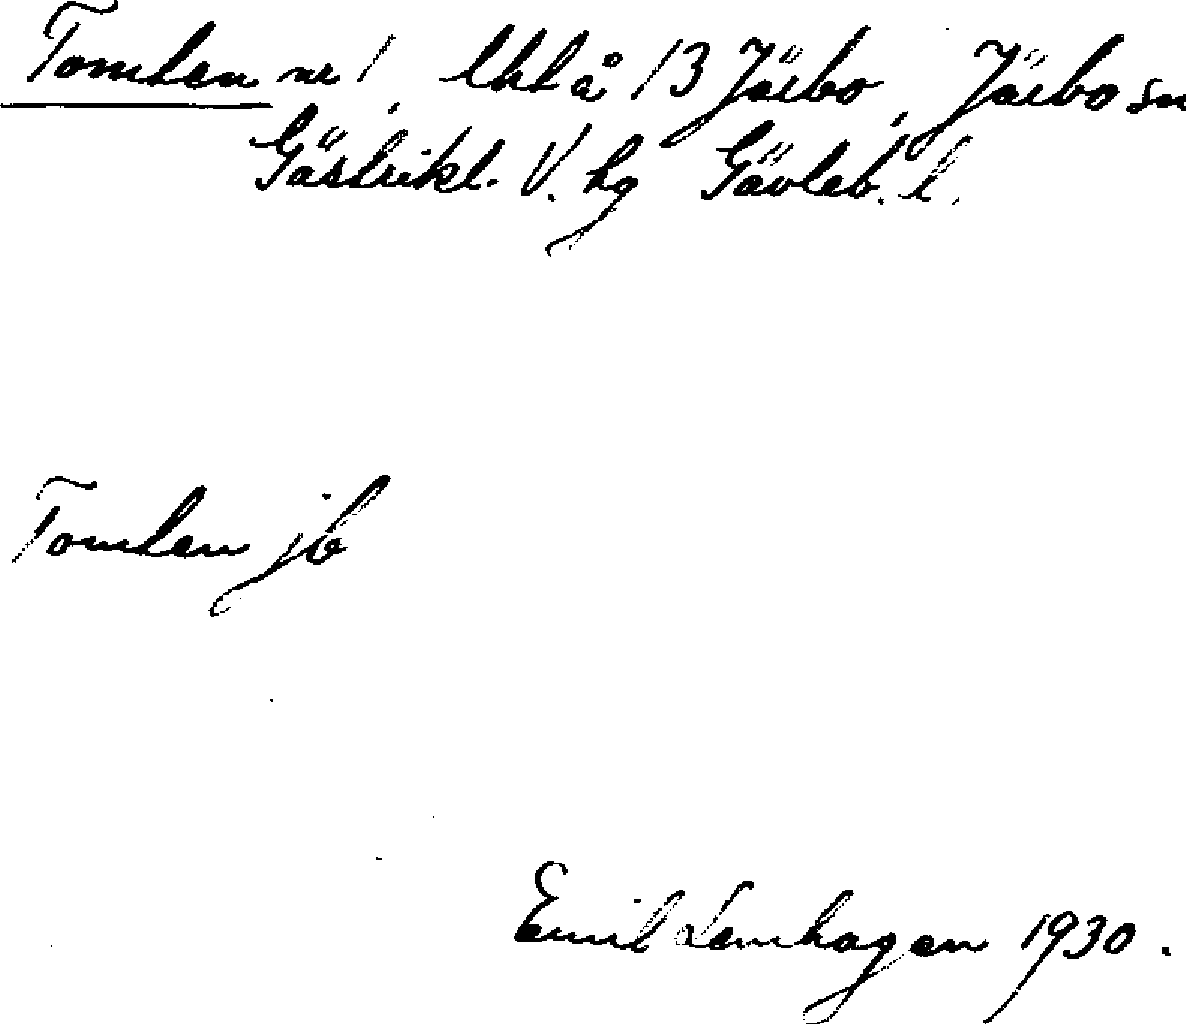 Tomten nr 1, Utl å 13 Järbo, Järbo sn
Gästrikl. V. hg Gävleb. l.
Tomten jb
Emil Lenhagen 1930.